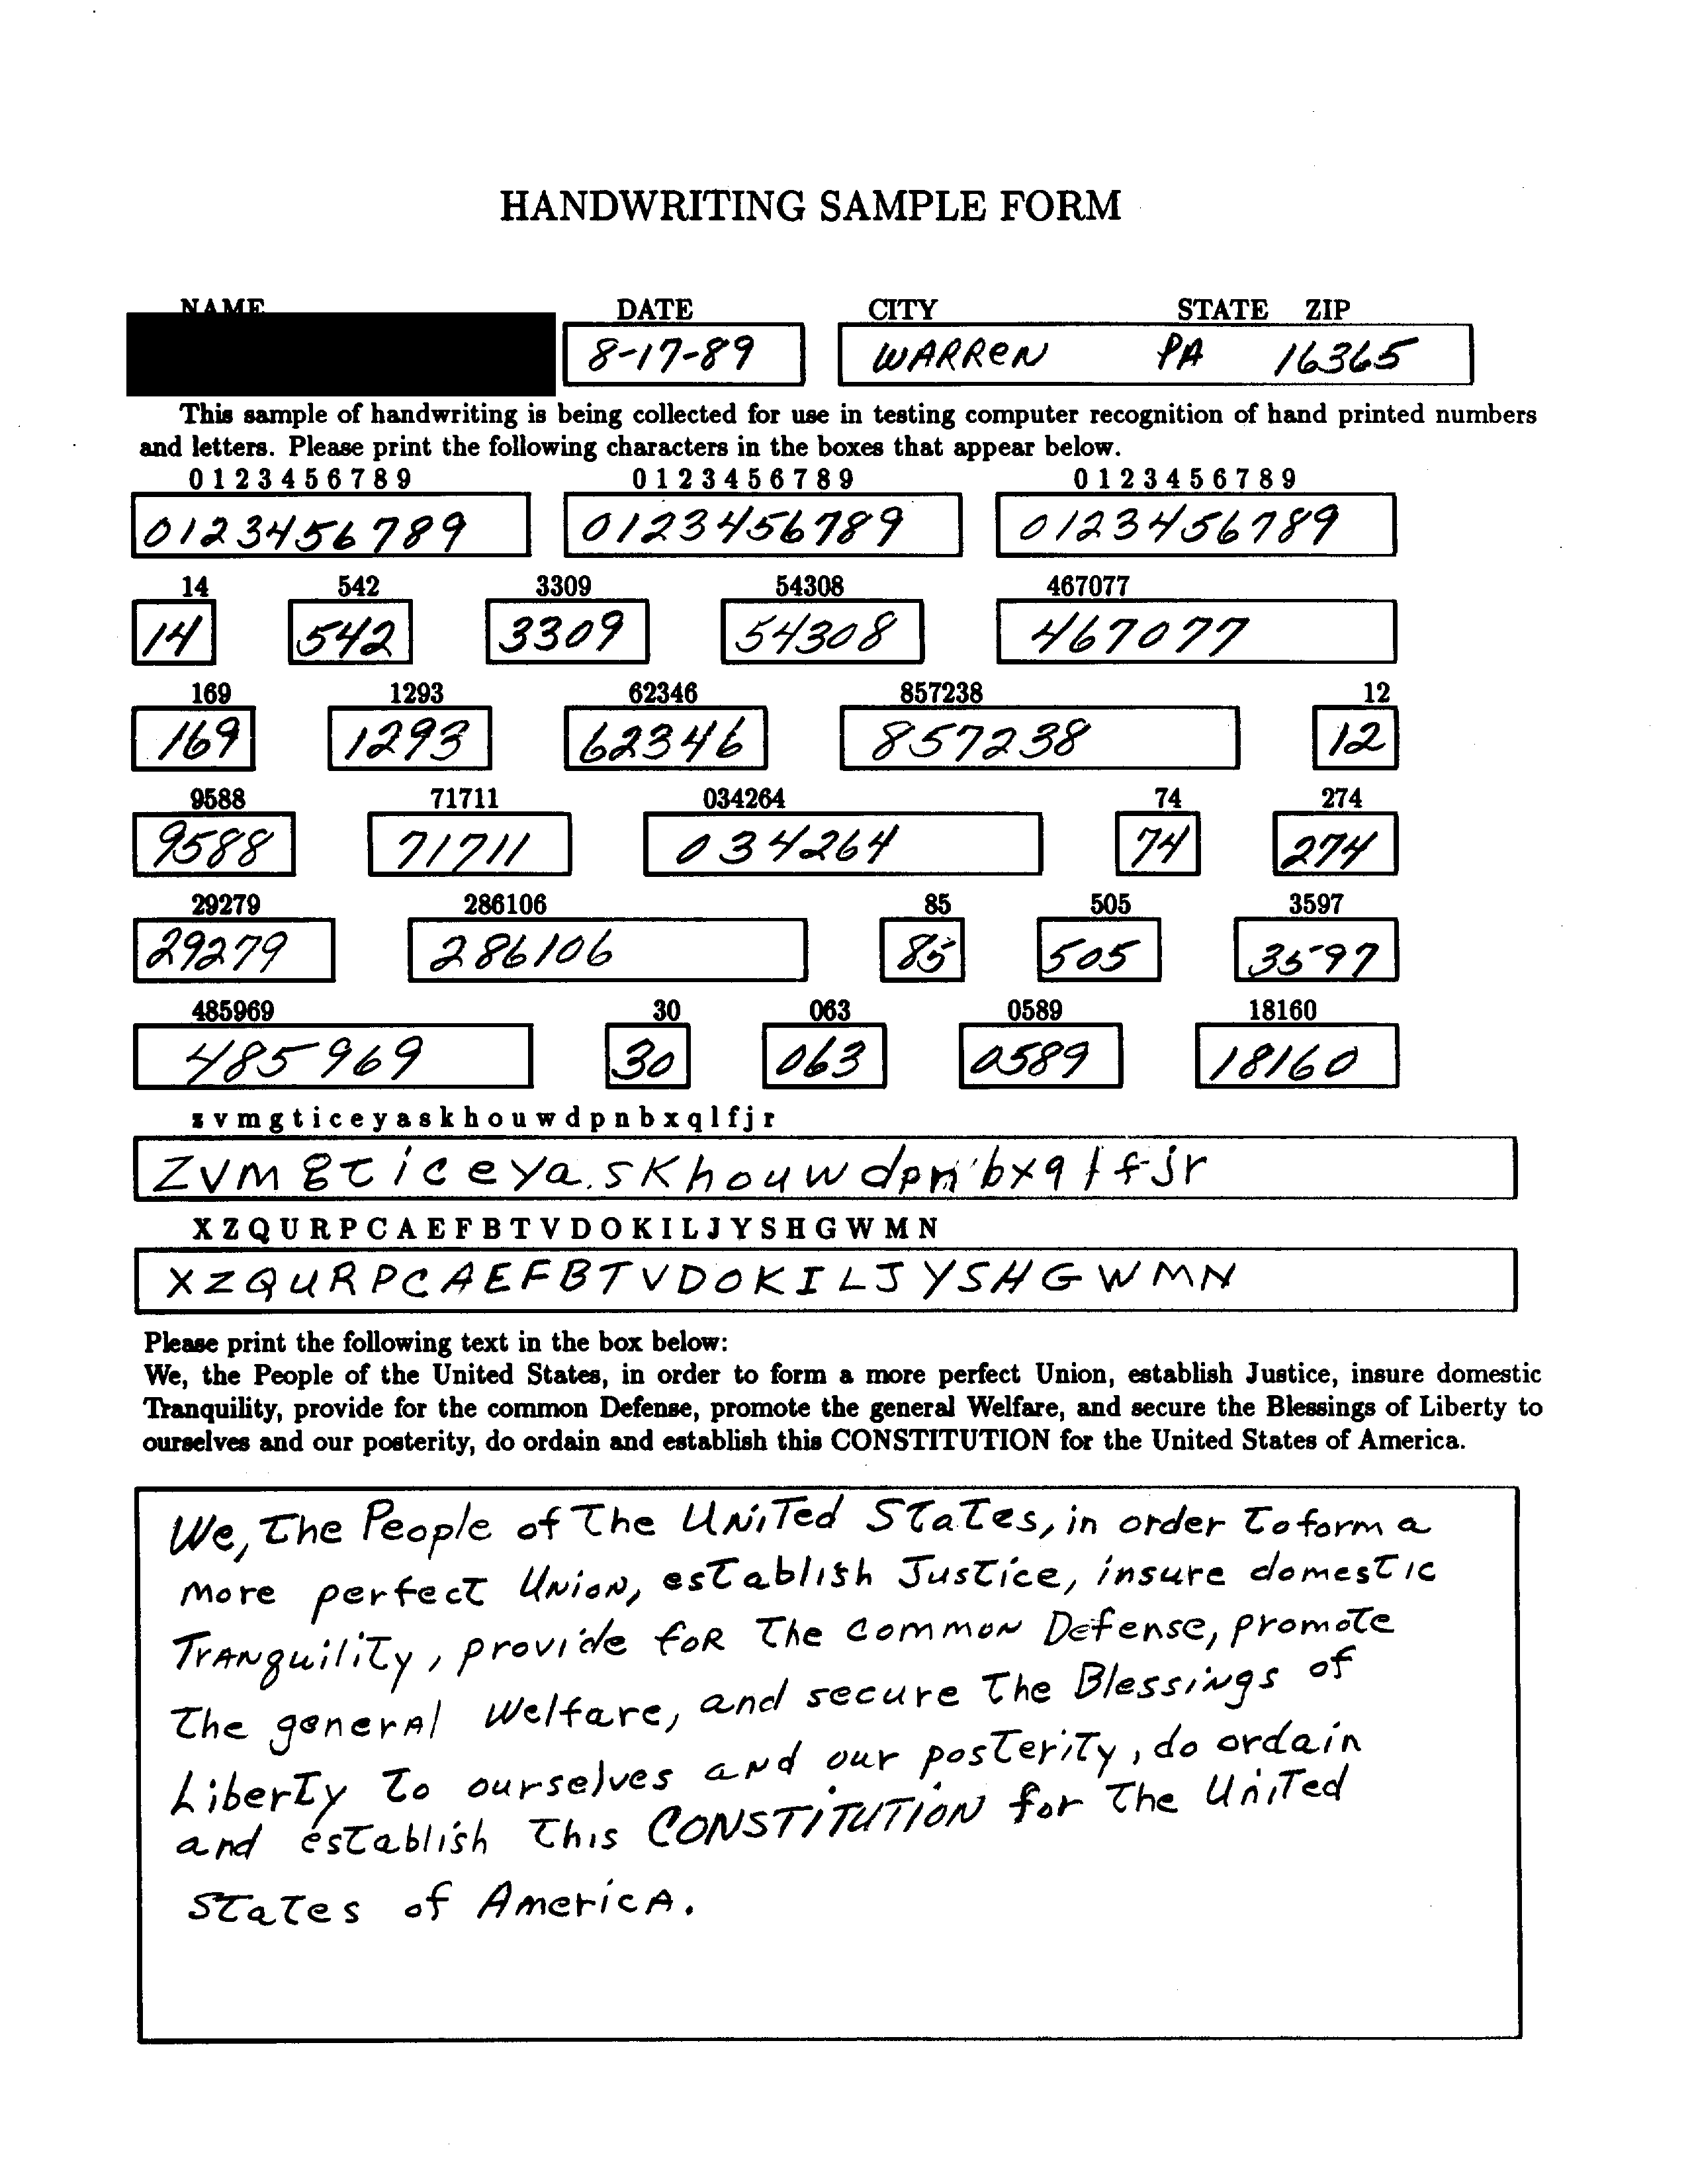 HANDWRITING SAMPLE FORM
NAME DATE CITY STATE ZIP
8-17-89 WARREN PA 16365
This sample of handwriting is being collected for use in testing computer recognition of hand printed numbers
and letters. Please print the following characters in the boxes that appear below.
0 1 2 3 4 5 6 7 8 9 0 1 2 3 4 5 6 7 8 9 0 1 2 3 4 5 6 7 8 9
0123456789 0123456789 0123456789
14 542 3309 54308 467077
14 542 3309 54308 467077
169 1293 62346 857238 12
169 1293 62346 857238 12
9588 71711 034264 74 274
9588 71711 034264 74 274
29279 286106 85 505 3597
29279 286106 85 505 3597
485969 30 063 0589 18160
485969 30 063 0589 18160
z v m g t i c e y a s k h o u w d p n b x q l f j r
Z v m g t i c e y a . s K h o u w d p n ' b x q l f j r
X Z Q U R P C A E F B T V D O K I L J Y S H G W M N
X Z Q U R P C A E F B T V D O K I L J Y S H G W M N
Please print the following text in the box below:
We, the People of the United States, in order to form a more perfect Union, establish Justice, insure domestic
Tranquility, provide for the common Defense, promote the general Welfare, and secure the Blessings of Liberty to
ourselves and our posterity, do ordain and establish this CONSTITUTION for the United States of America.
We, the People of the UNiTed STaTes, in order to form a
more perfect UNioN, establish Justice, insure domestic
TrANquiliTy, provide foR The common Defense, promote
The generAl Welfare, and secure The Blessings of
LiberTy to ourselves aNd our posTeriTy, do ordain
and establish This CONSTiTUTiON for The UniTed
STaTes of AmericA.